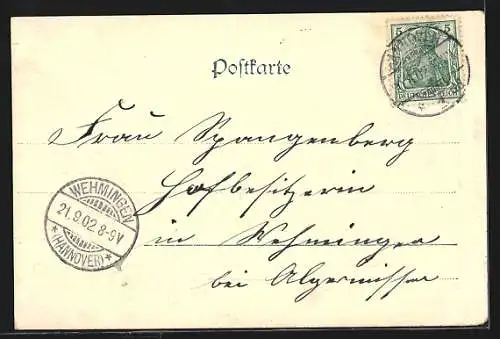 5 5
Postkarte
Frau Spangenberg
Hofbesitzerin
in Wehmingen
bei Algermissen
WEHMINGEN
21.9.02 8-9V
* (HANNOVER) *